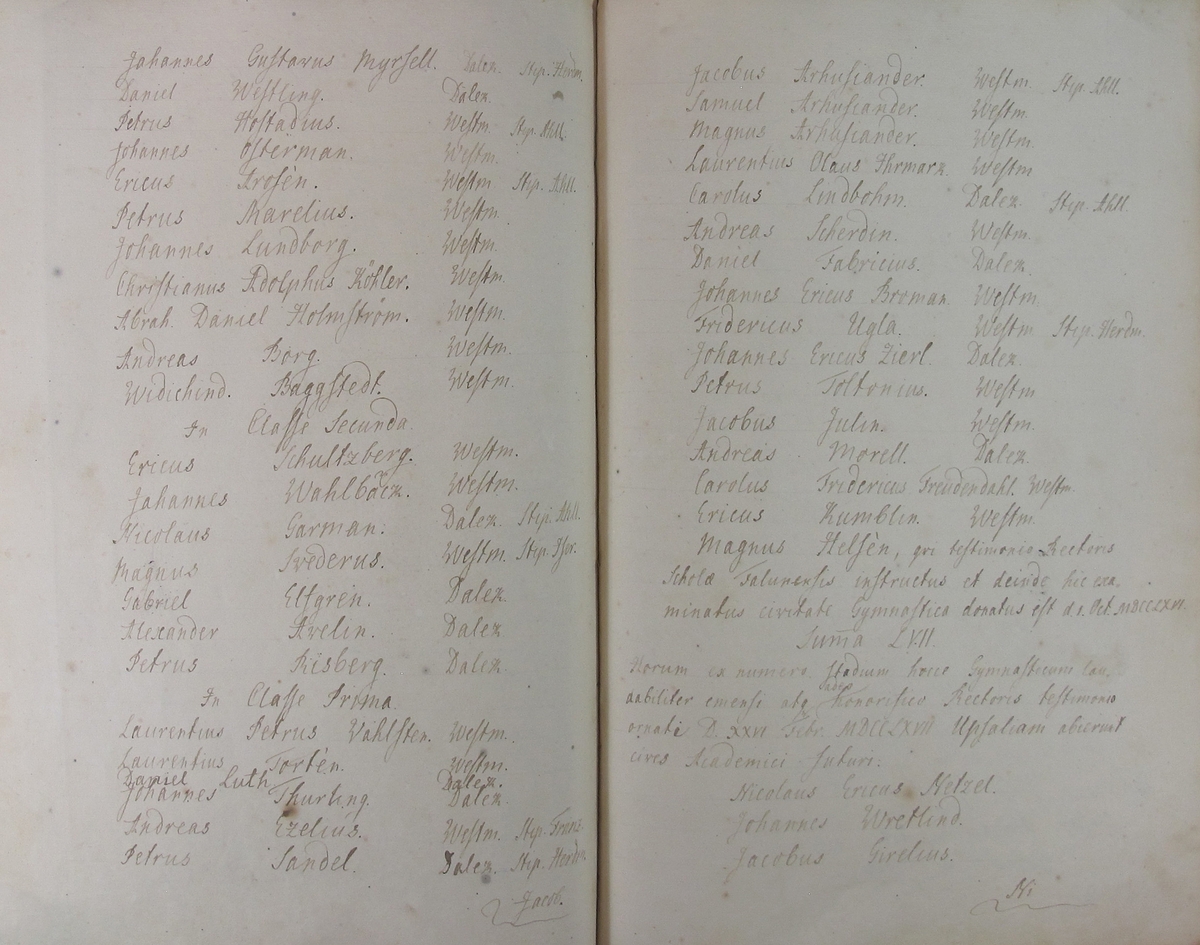 Johannes Gustavus Myrsell. Dalek. Stip. Herdm.
Daniel Westling. Dalek.
Petrus Hostadius. Westm. Stip. Ahll.
Johannes Österman. Westm.
Ericus Arosèn. Westm. Stip. Ahll.
Petrus Marelius. Westm.
Johannes Lundborg. Westm.
Christianus Adolphus Köhler. Westm.
Abrah. Daniel Holmström. Westm.
Andreas Borg. Westm.
Widichind. Baggstedt. Westm.
In Classe Secunda.
Ericus Schultzberg. Westm.
Johannes Wahlbäck. Westm.
Nicolaus Garman. Dalek. Stip. Ahll.
Magnus Svederus. Westm. Stip.
Gabriel Elfgren. Dalek.
Alexander Avelin. Dalek
Petrus Risberg. Dalek
In Classe Prima.
Laurentius Petrus Vahlsten. Westm.
Laurentius Tortèn. Westm.
Daniel Luth Dalek.
Johannes Thurling. Dalek
Andreas Ezelius. Westm. Stip.
Petrus Sandel. Dalek. Stip. Herdm.
Jacob.
Jacobus Arhusiander. Westm. Stip. Ahll.
Samuel Arhusiander. Westm.
Magnus Arhusiander. Westm.
Laurentius Olaus Ihrmark. Westm
Carolus Lindbohm. Dalek Stip. Ahll.
Andreas Scherdin. Westm.
Daniel Fabricius. Dalek.
Johannes Ericus Broman. Westm.
Fridericus Ugla. Westm Stip. Herdm.
Johannes Ericus Zierl. Dalek.
Petrus Toltonius. Westm
Jacobus Julin. Westm.
Andreas Morell. Dalek.
Carolus Fridericus Freudendahl. Westm.
Ericus Humblin. Westm.
Magnus Helsèn, qvi testimonio Rectoris
Scholæ Falunensis instructus et deinde hic exa-
minatus civitate Gymnastica donatus est d. 1. Oct. MDCCLXVI.
Suma LVII.
Horum ex numero Stadium hocce Gymnasticum lau-
dabiliter emensi atq Honorifico Rectoris testimonio
ornati D. XXVI Febr. MDCCLXVII Upsaliam abierunt
cives Academici futuri.
Nicolaus Ericus Netzel.
Johannes Wretlind.
Jacobus Girelius.
Ni